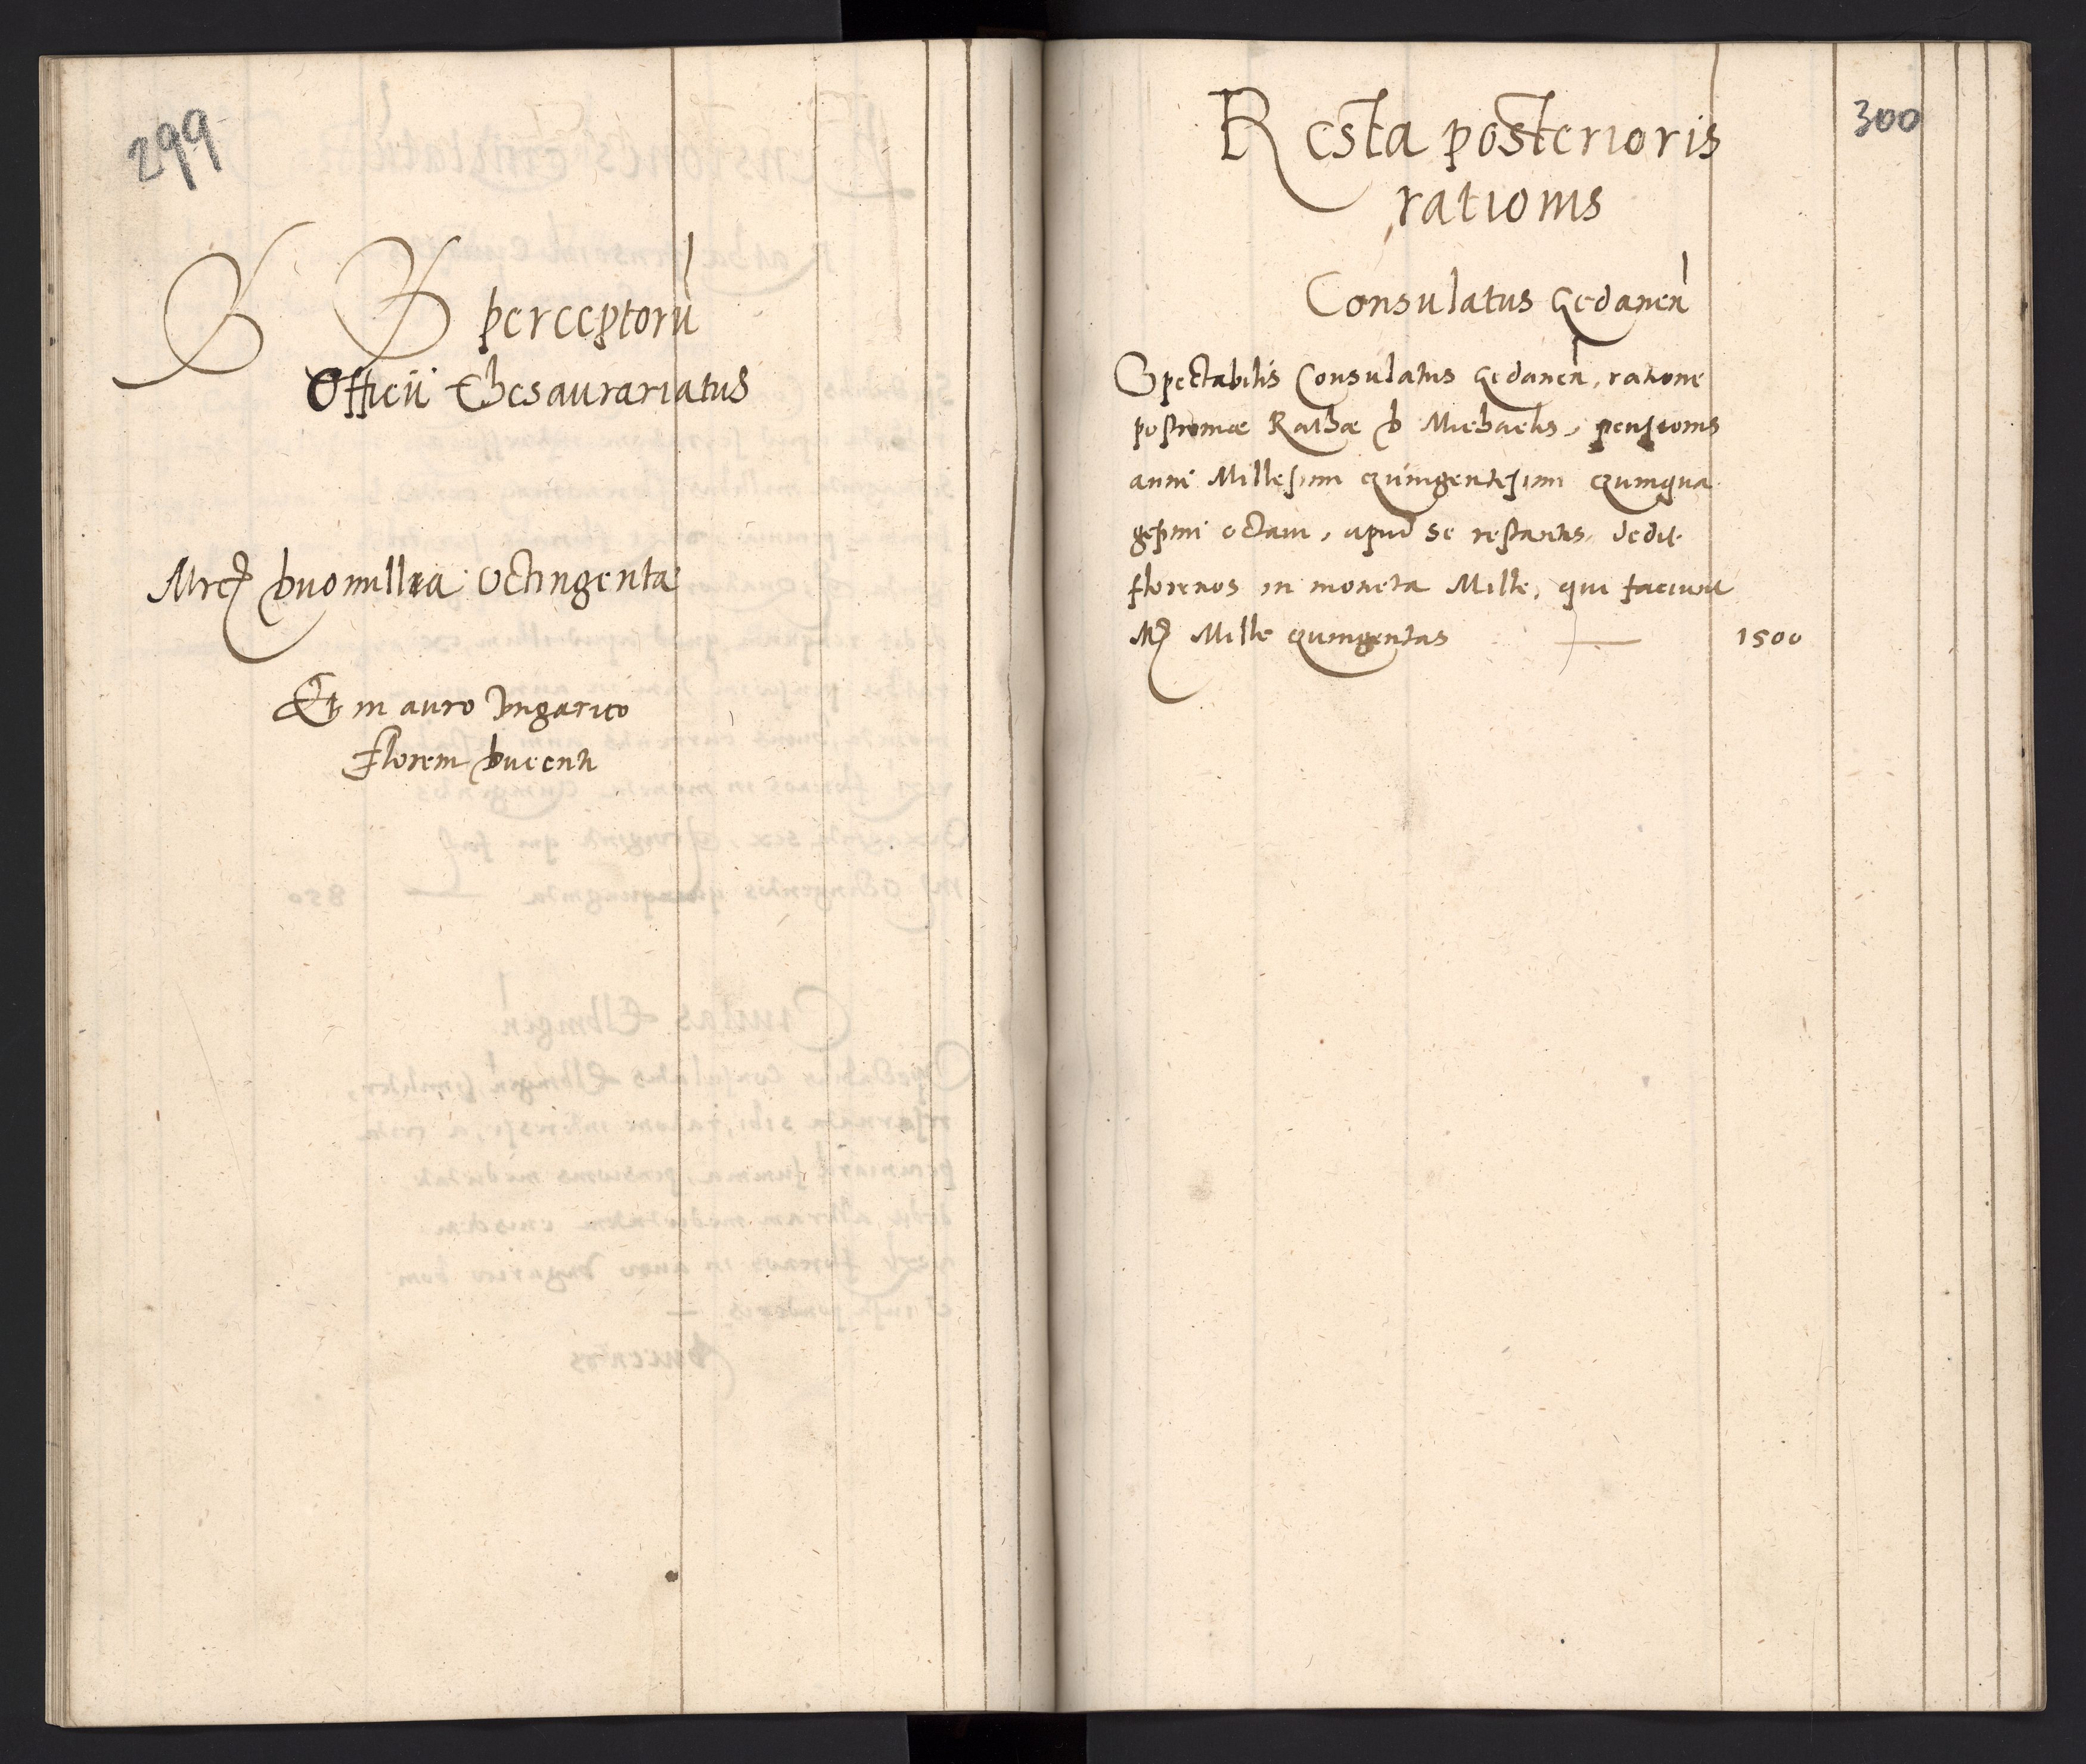 299
S S perceptorū
Officii Thesaurariatus
Mrcz duomillia Octingenta
Et in auro Vngarico
Floreni ducenti
300
Resta posterioris
rationis
Consulatus Gedanen
Spectabilis Consulatus Gedanen, ratione
postremæ Rathæ D Michaelis, pensionis
anni Millesimi quingentesimi quinqua
gesimi octavi, apud se restantis, dedit
florenos in moneta Mille, qui faciunt
Mz Mille quingentas 1500